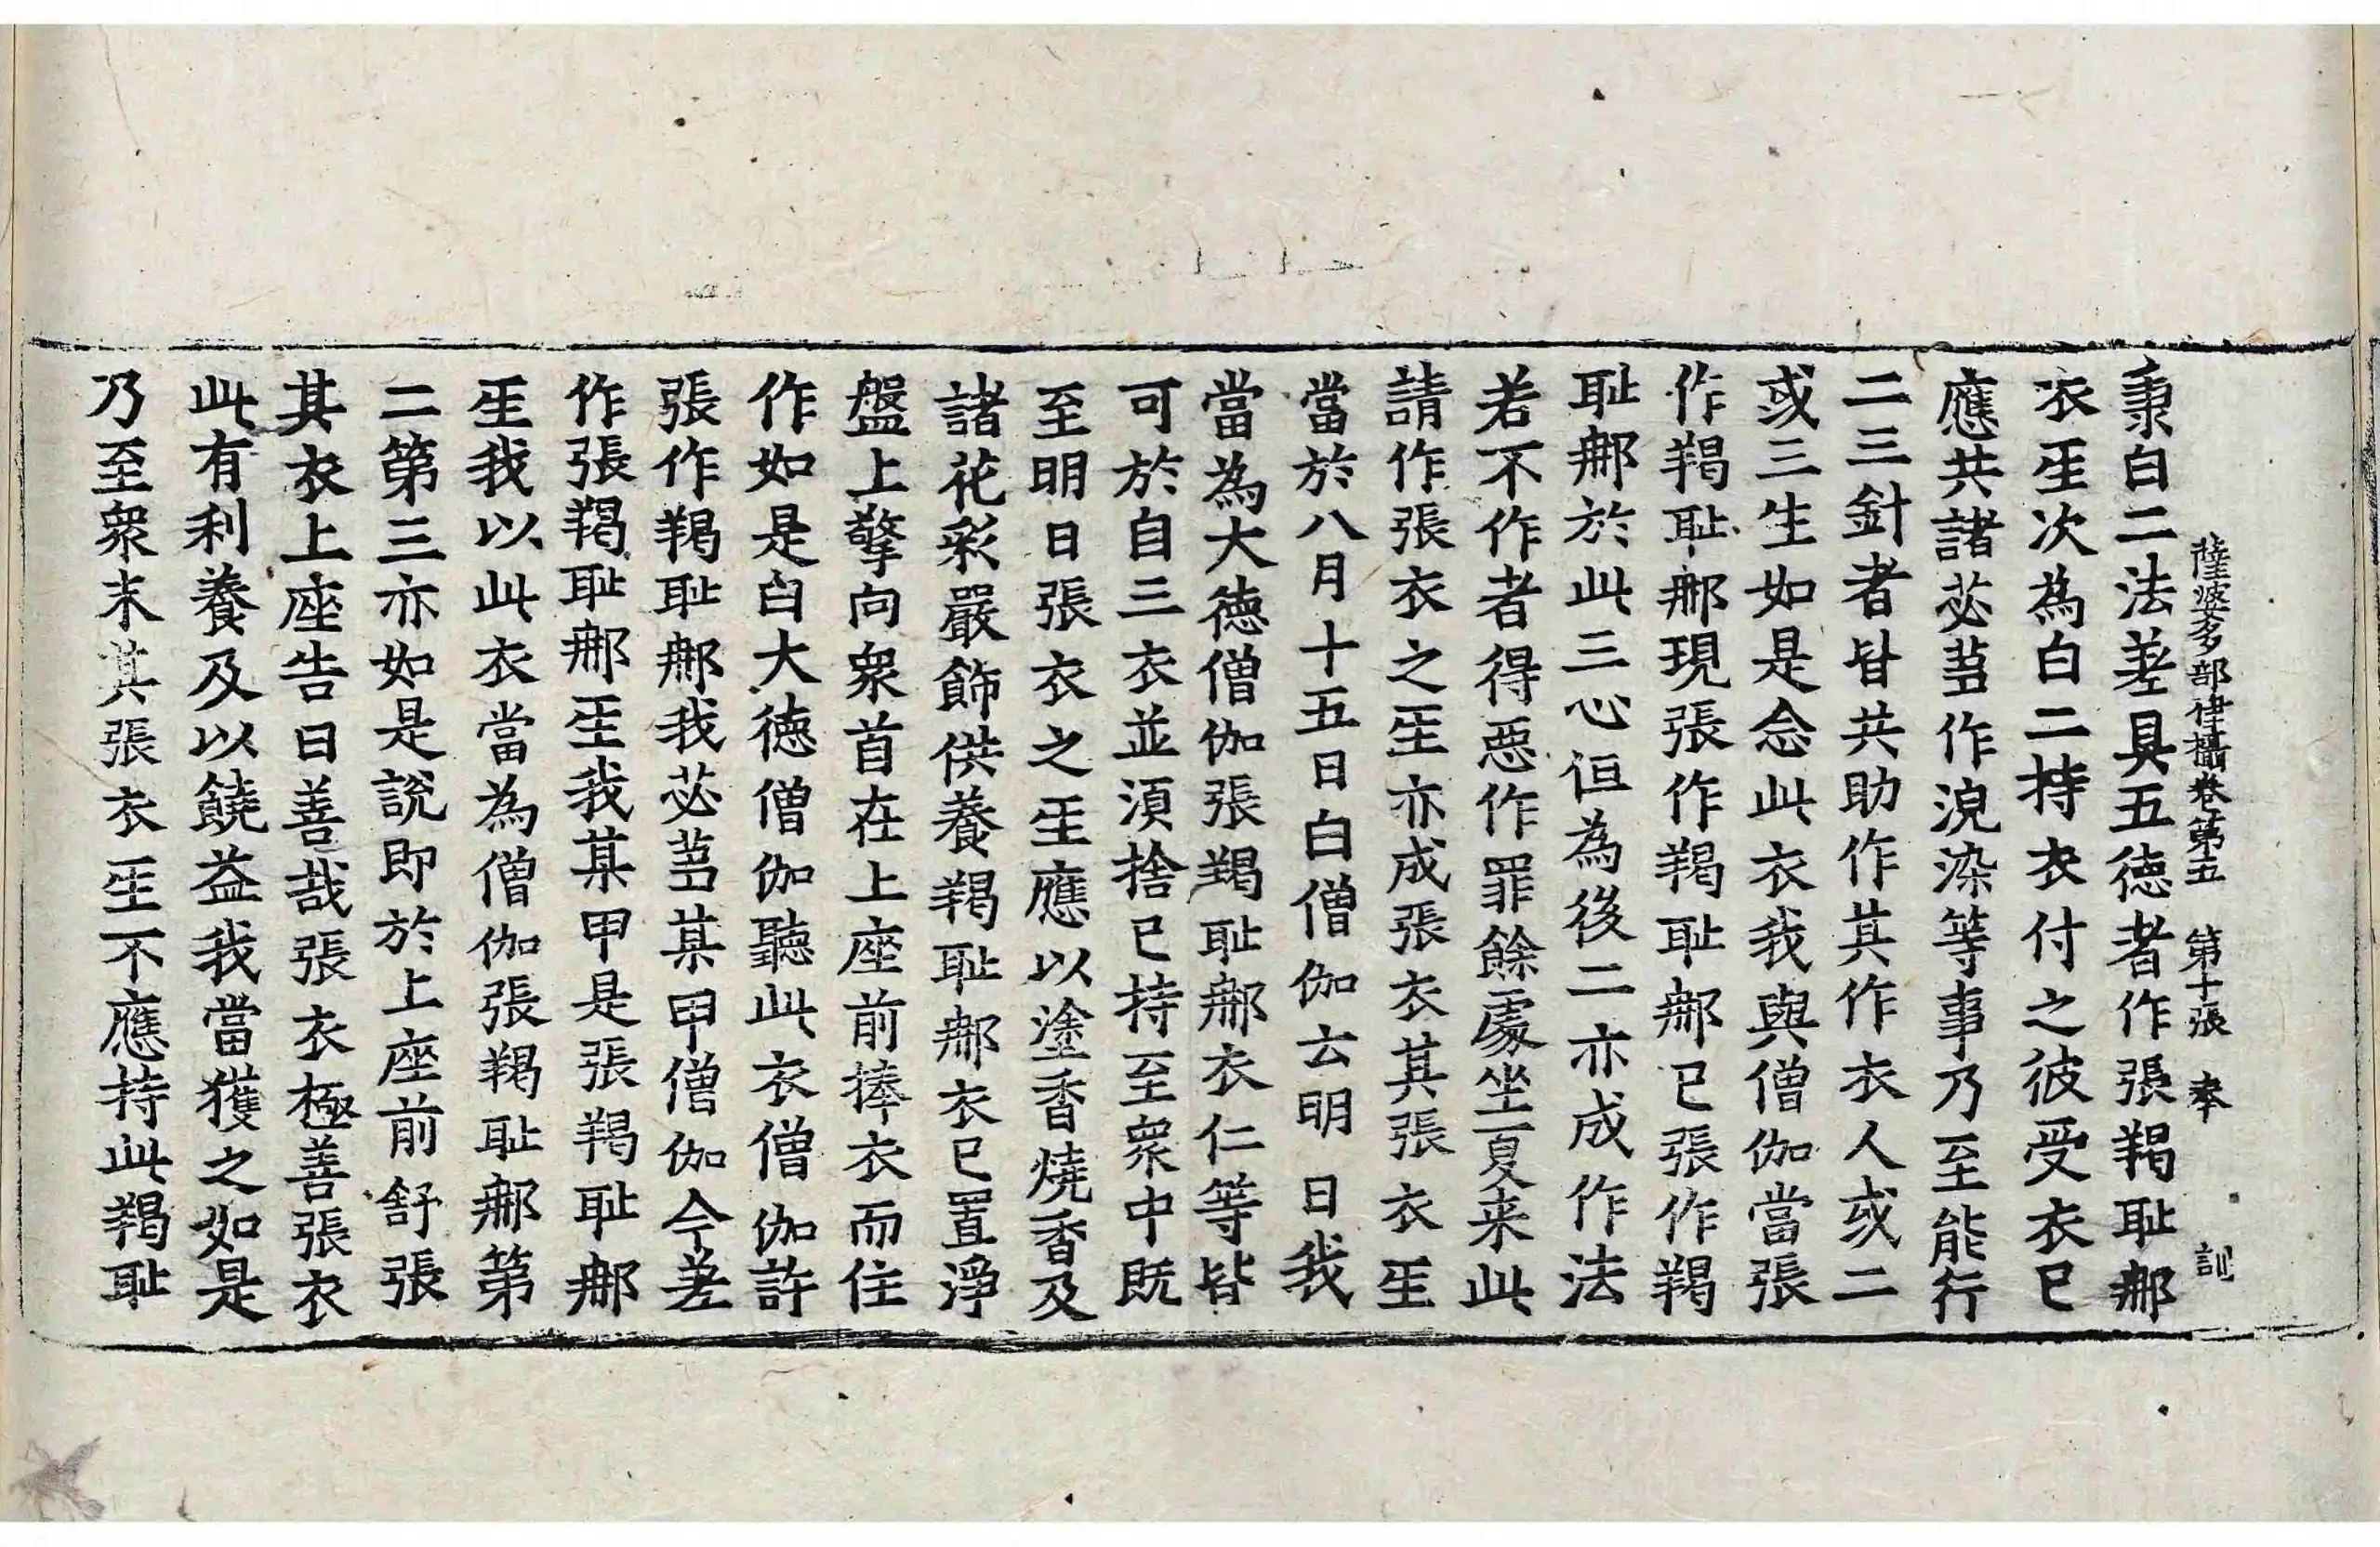 薩婆多部律攝卷第五 第十張 奉 訓
秉白二法差具五德者作張羯耻那
衣𤯔次為白二持衣付之彼受衣已
應共諸苾芻作浣染等事乃至能行
二三針者皆共助作其作衣人或二
或三生如是念此衣我與僧伽當張
作羯耻那現張作羯耻那已張作羯
耻那於此三心但為後二亦成作法
若不作者得惡作罪餘處坐夏来此
請作張衣之𤯔亦成張衣其張衣𤯔
當於八月十五日白僧伽云明日我
當為大德僧伽張羯耻那衣仁等皆
可於自三衣並須捨已持至衆中既
至明日張衣之𤯔應以塗香燒香及
諸花彩嚴飾供養羯耻那衣已置淨
盤上擎向衆首在上座前捧衣而住
作如是白大德僧伽聽此衣僧伽許
張作羯耻那我苾芻某甲僧伽今差
作張羯耻那𤯔我某甲是張羯耻那
𤯔我以此衣當為僧伽張羯耻那第
二第三亦如是說即於上座前舒張
其衣上座告曰善哉張衣極善張衣
此有利養及以饒益我當獲之如是
乃至衆末其張衣𤯔不應持此羯耻